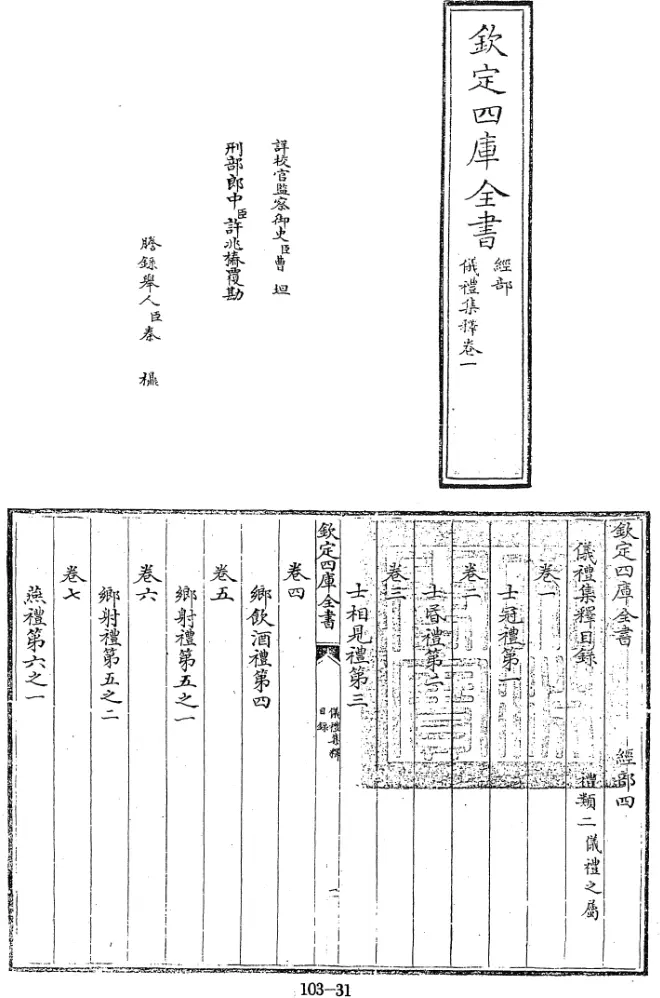 欽定四庫全書
經部
儀禮集釋卷一
詳校官監察御史臣曹坦
刑部郎中臣許兆椿覆勘
謄錄舉人臣秦
欽定四庫全書 經部四
儀禮集釋目錄 禮類二儀禮之屬
卷一
士冠禮第一
卷二
士昏禮第二
卷三
士相見禮第三
欽定四庫全書
儀禮集釋
目錄
一
卷四
鄉飲酒禮第四
卷五
鄉射禮第五之一
卷六
鄉射禮第五之二
卷七
燕禮第六之一
103—31